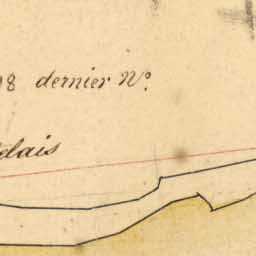 8 dernier Nº
dais